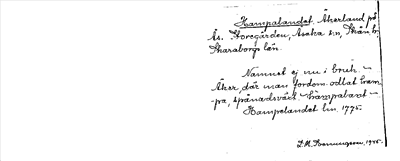 Hampalandet. Åkerland på
Ås. Storegården, Asaka sn, Skån. hd
Skaraborgs län.
Namnet ej nu i bruk. -
Åker, där man fordom odlat ham-
pa, spånadsväxt.
Hampelandet lm. 1775.
1945.